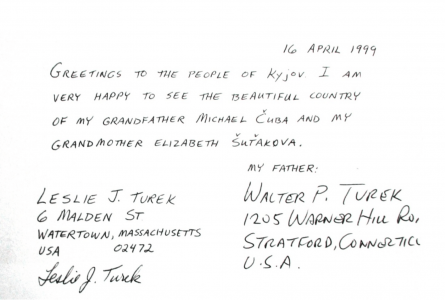 16 APRIL 1999
GREETINGS TO THE PEOPLE OF KYJOV I AM
VERY HAPPY TO SEE THE BEAUTIFUL COUNTRY
OF MY GRANDFATHER MICHAEL ČUBA AND MY
GRANDMOTHER ELIZABETH ŠUŤAKOVA.
MY FATHER:
LESLIE J. TUREK
6 MALDEN ST
WATERTOWN, MASSACHUSETTS
USA 02472
Leslie J. Turek
WALTER P. TUREK
1205 WARNER HILL RD,
STRATFORD, CONNECTICU
U.S.A.